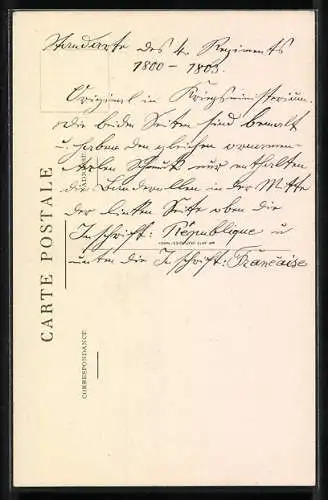 Standarte des 4. Regiments
1800 - 1803.
Original im Kriegsministerium.
Die beiden Seiten sind bemalt
u. haben den gleichen ornamen-
talen Schmuck nur enthalten
die Banderollen in der Mitte
der linken Seite oben die
Inschrift: République u
unten die Inschrift: Francaise
CARTE POSTALE
CORRESPONDANCE